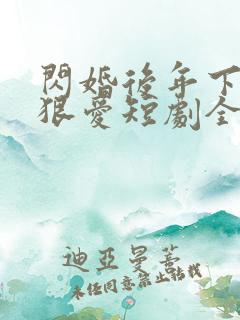 閃婚後年下
狠愛短劇全
迪亞曼蒂
未经同意禁止转载